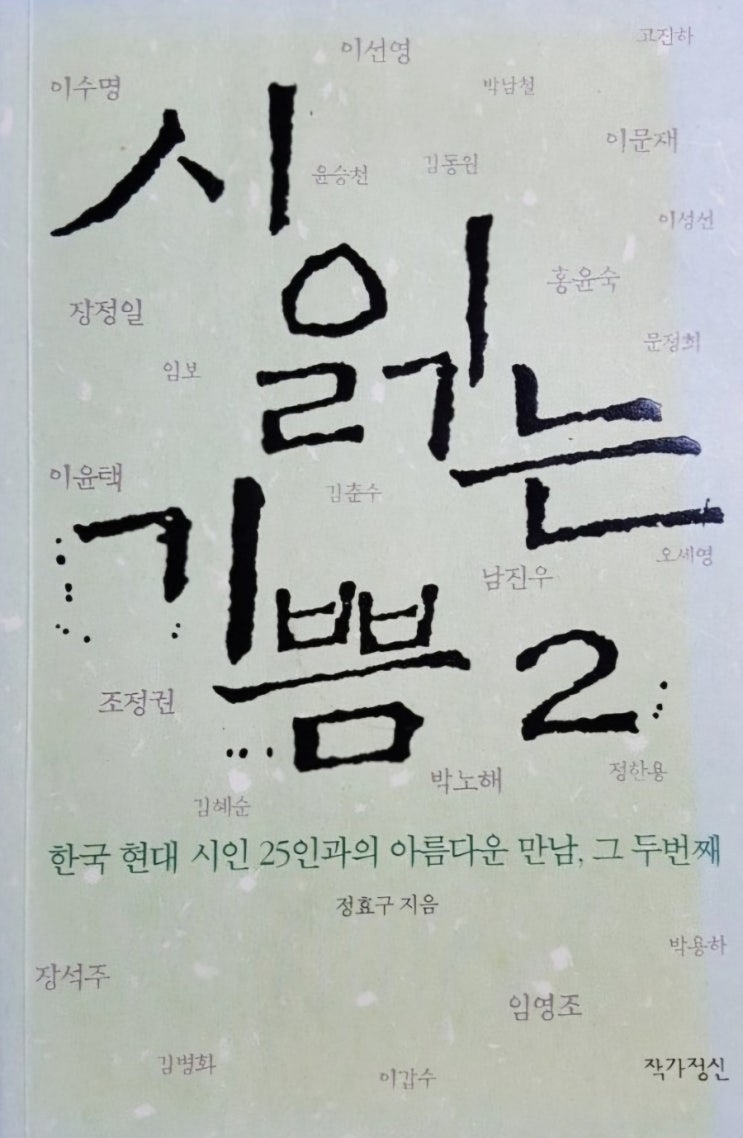 이선영
고진하
이수명
박남철
이문재
윤승천
김동원
시
이성선
홍윤숙
장정일
문정희
임보
읽는
이윤택
김춘수
오세영
남진우
기쁨 2
조정권
정한용
박노해
김혜순
한국 현대 시인 25인과의 아름다운 만남, 그 두번째
정효구 지음
박용하
장석주
임영조
김병화
이갑수
작가정신